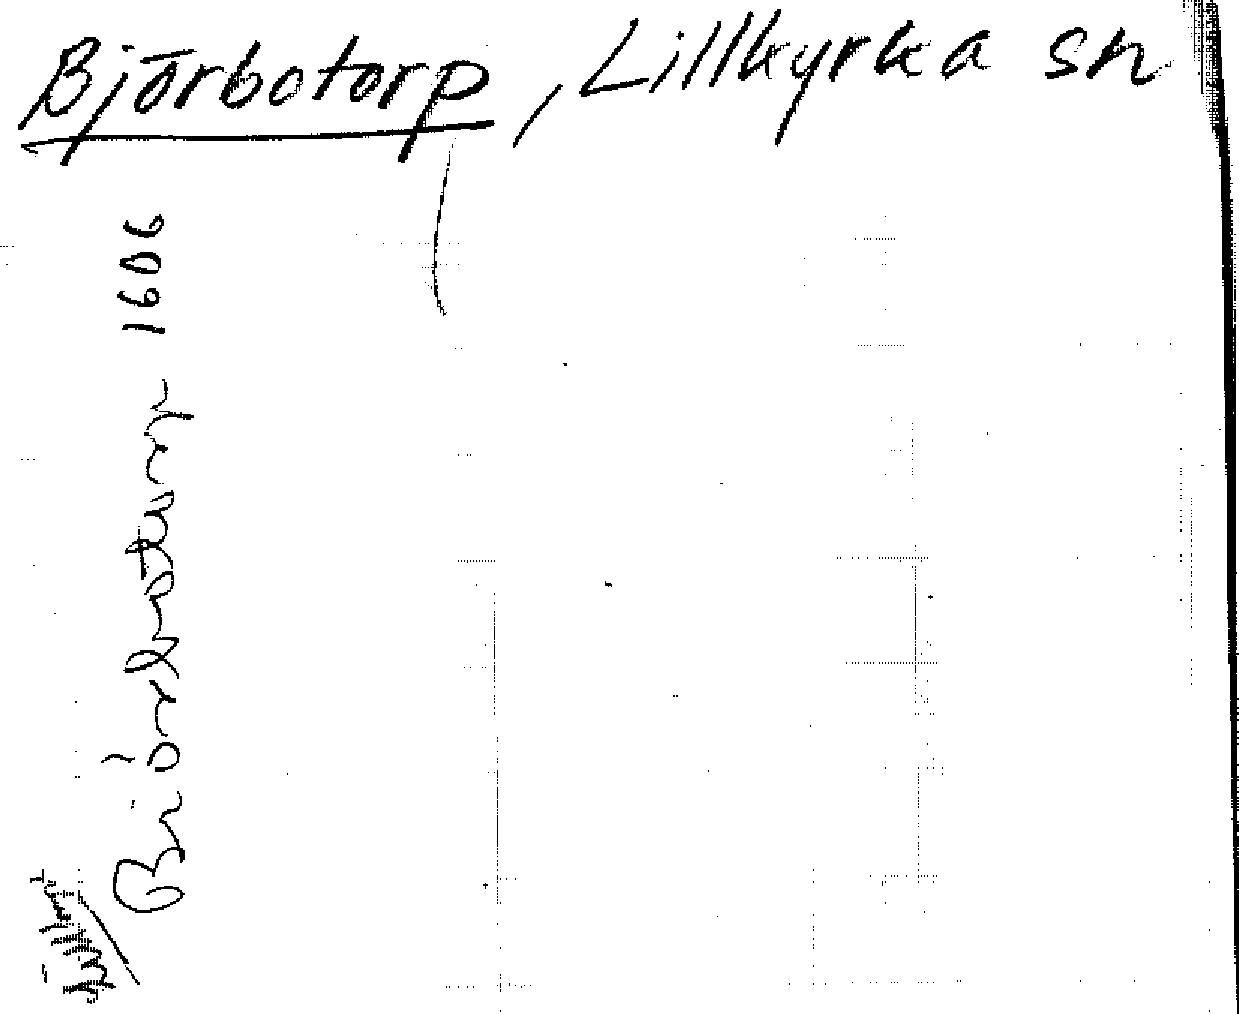 Björbotorp, Lillkyrka sn
Biörbotorp 1606